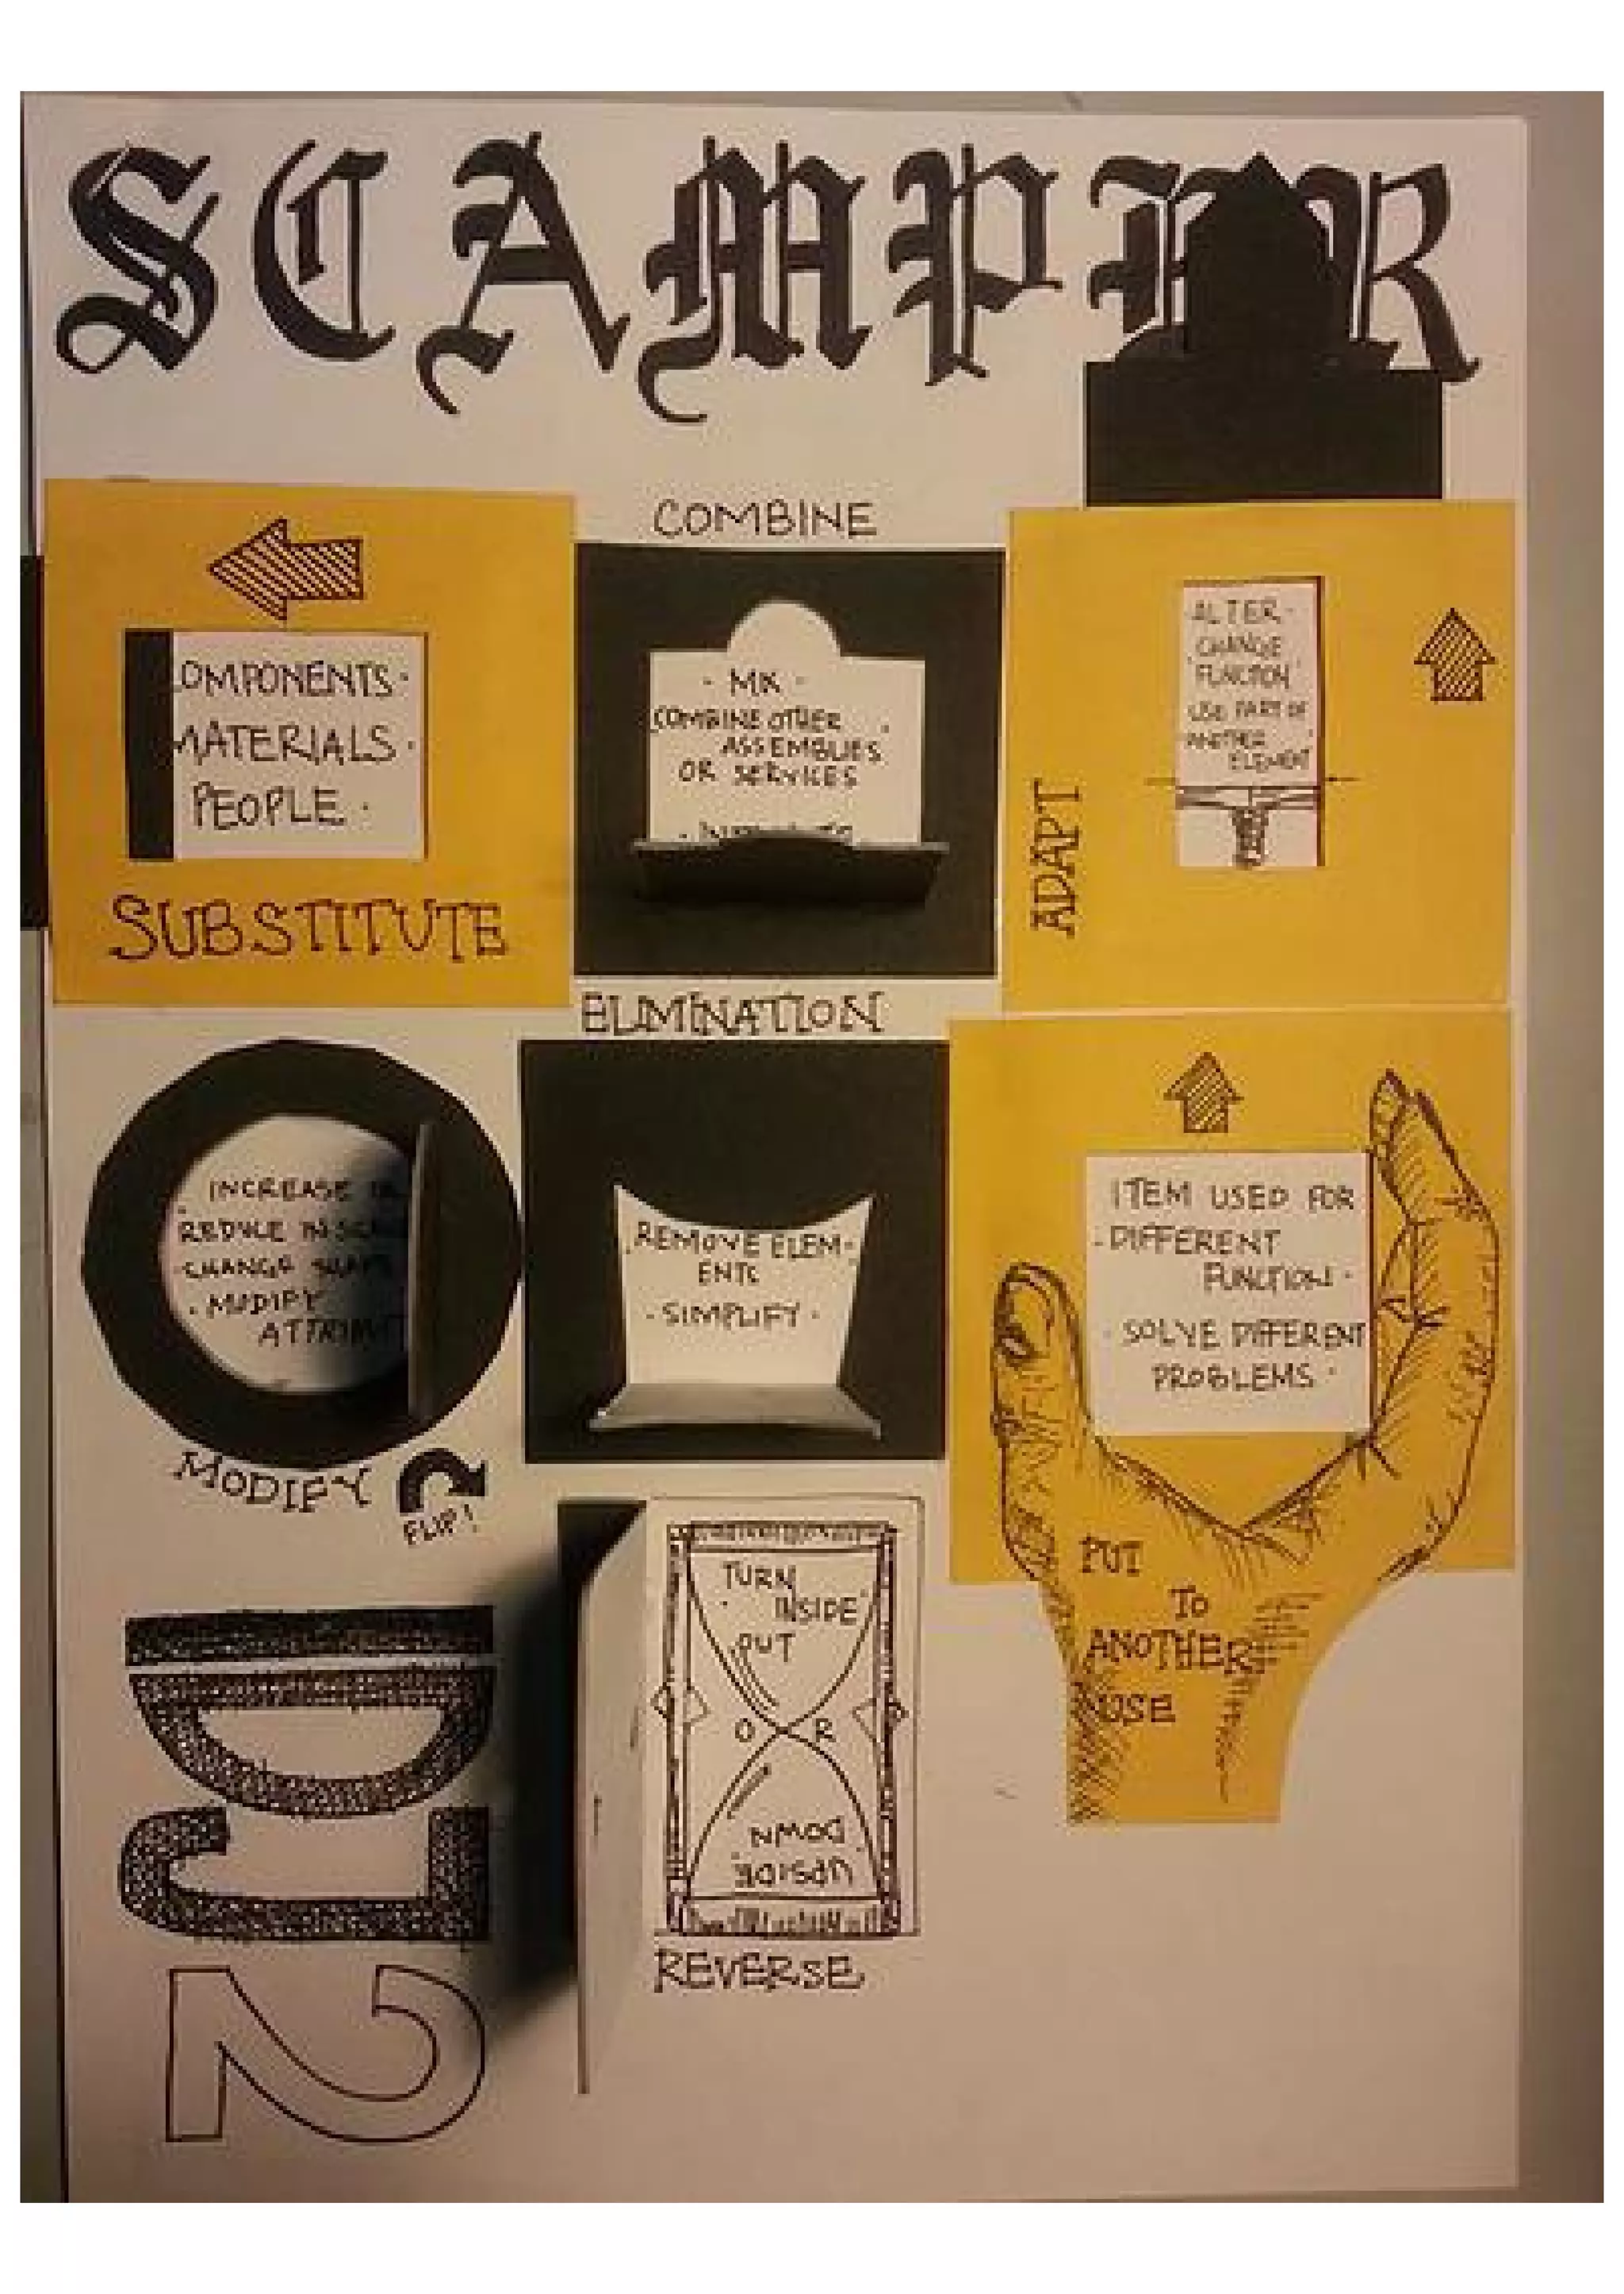 SCAMPER
SUBSTITUTE
COMPONENTS
MATERIALS
PEOPLE
COMBINE
COMBINE OTHER
ASSEMBLIES
OR SERVICES
ADAPT
ALTER
CHANGE
FUNCTION
USE PART OF
ANOTHER
ELEMENT
MODIFY
FLIP!
INCREASE
REDUCE IN
CHANGE
MODIFY
ELIMINATION
REMOVE ELEM-
ENTS
SIMPLIFY
ITEM USED FOR
DIFFERENT
FUNCTION
SOLVE DIFFERENT
PROBLEMS
PUT
TO
ANOTHER
USE
TURN
INSIDE
OUT
OR
UPSIDE
DOWN
REVERSE
ID